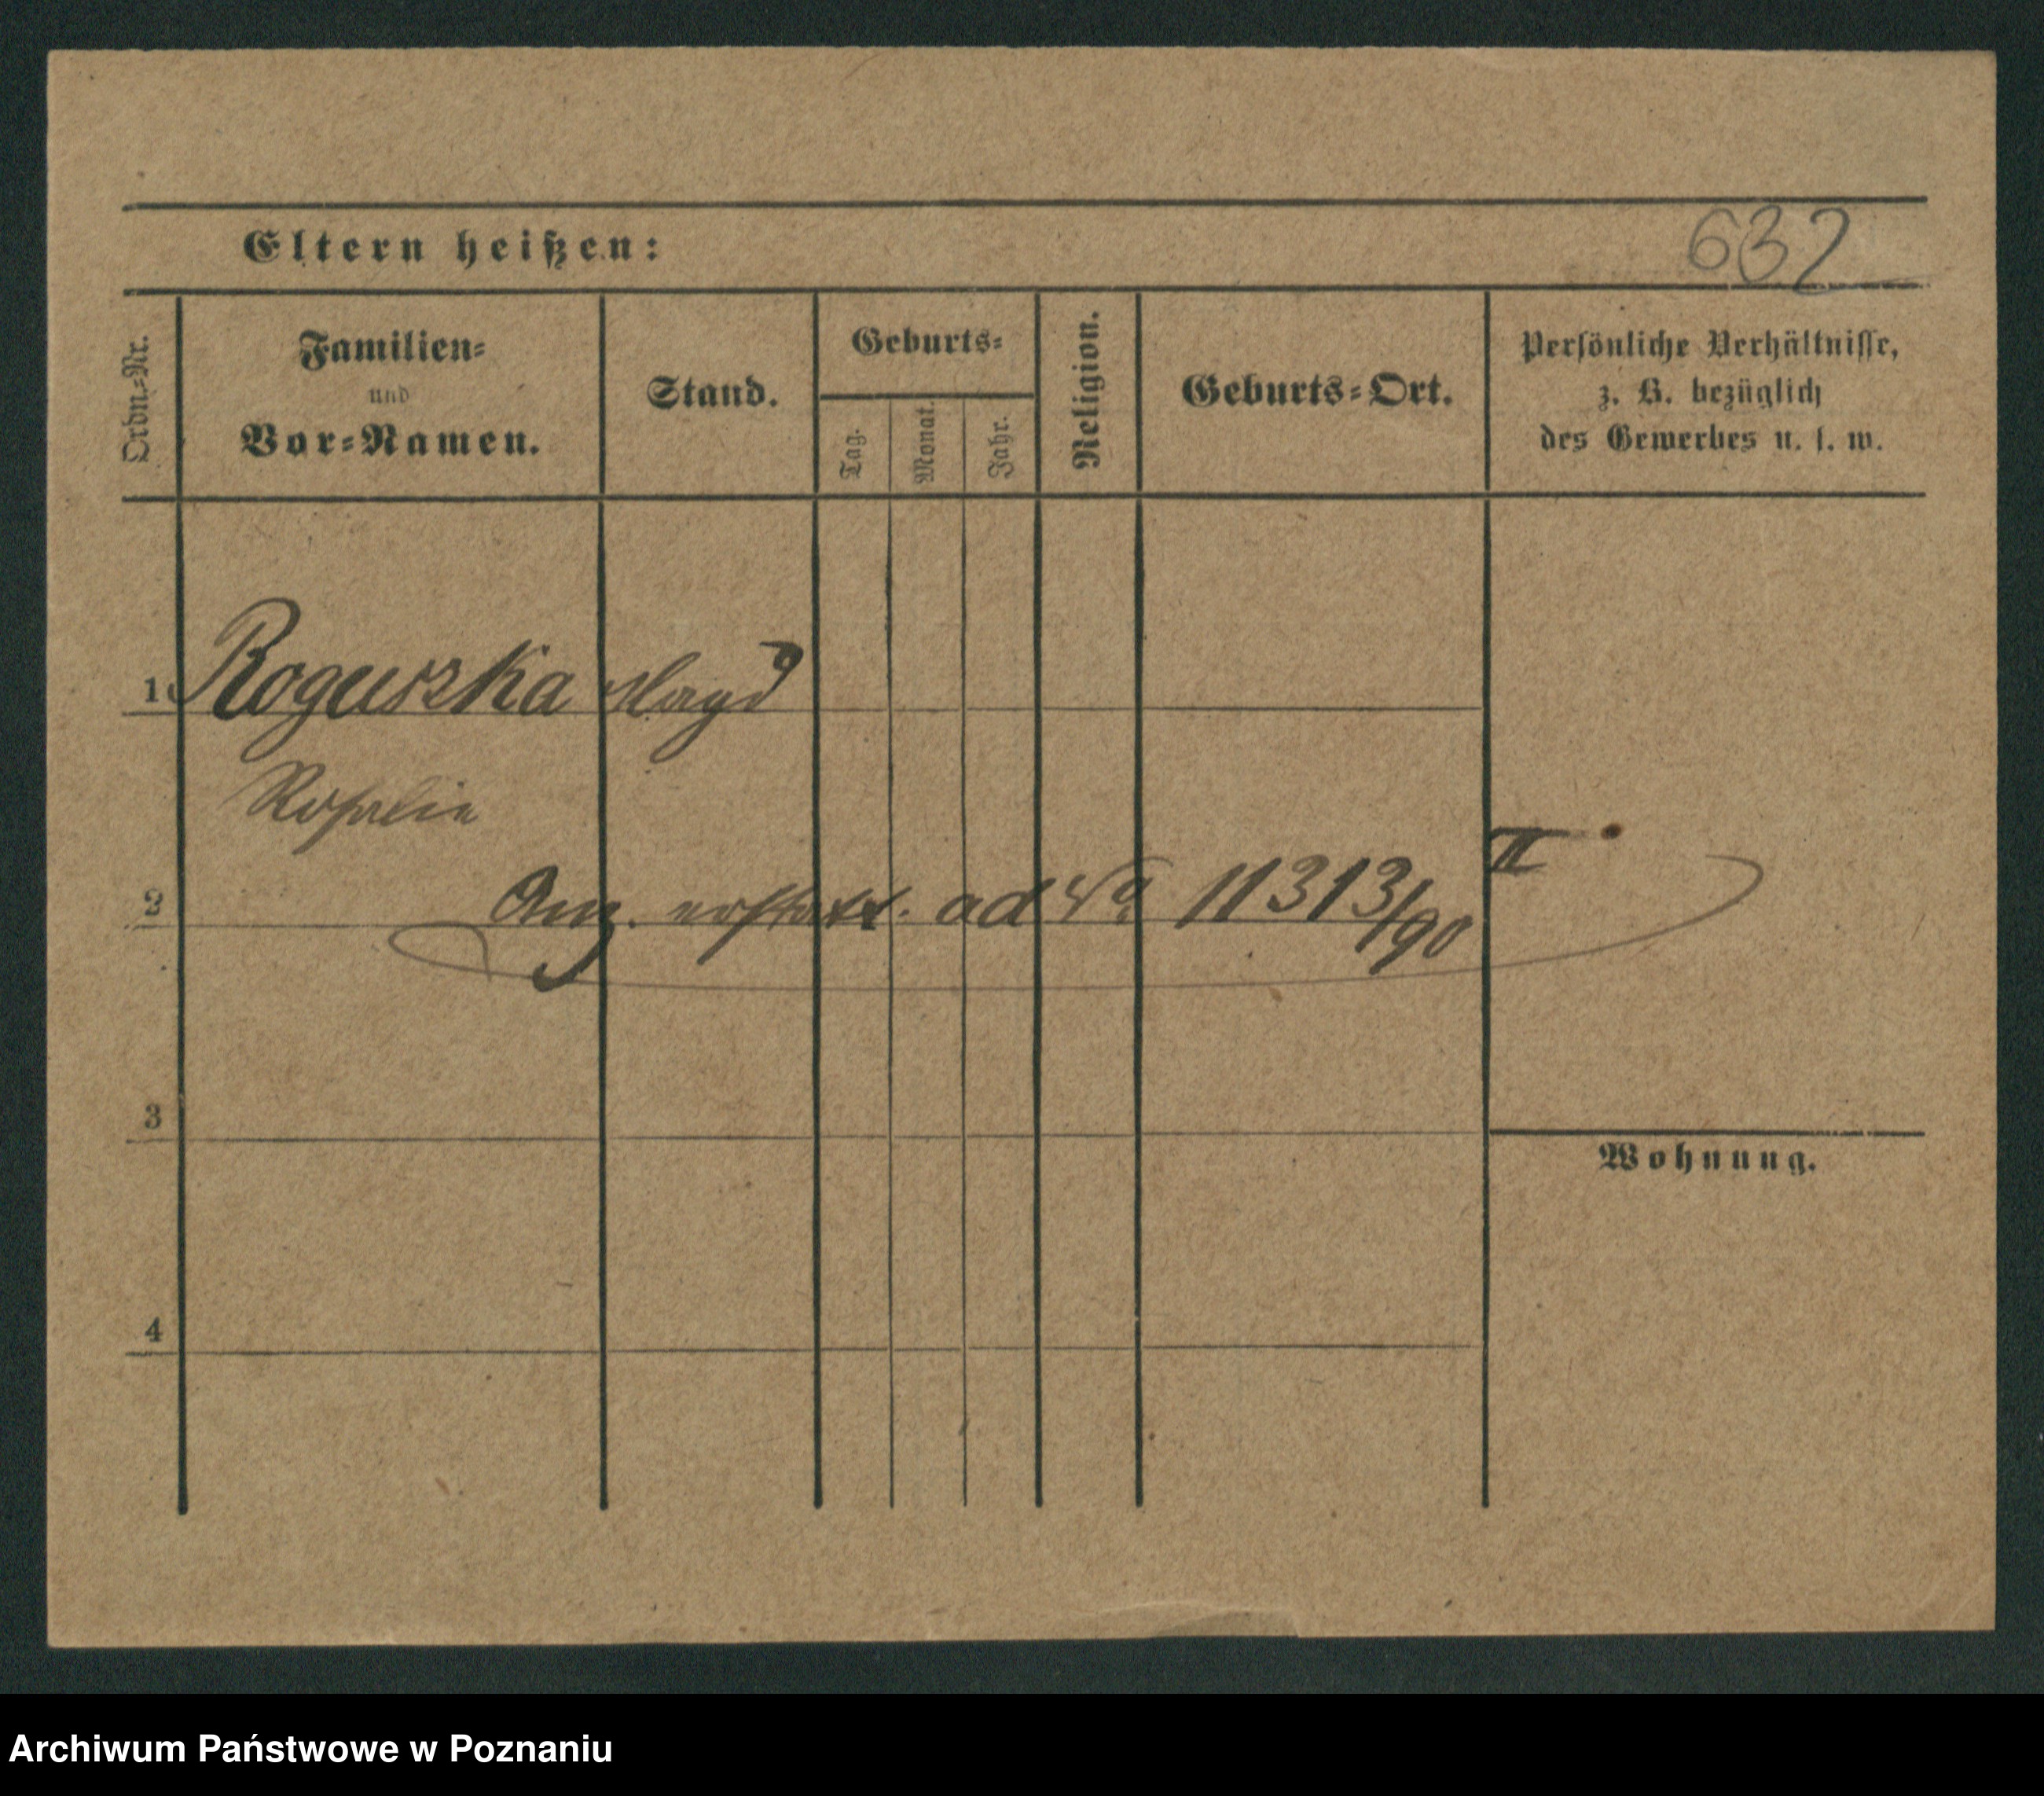 632
Eltern heißen:
Ordn.=Nr.
Familien=
und
Vor=Namen.
Stand.
Geburts=
Tag.
Monat.
Jahr.
Religion.
Geburts=Ort.
Persönliche Verhältnisse,
z. B. bezüglich
des Gewerbes u. s. w.
1 Roguszka Magd
Rosalie
2 Anz. erstatt. ad No 11313/90 II
3
Wohnung.
4
Archiwum Państwowe w Poznaniu